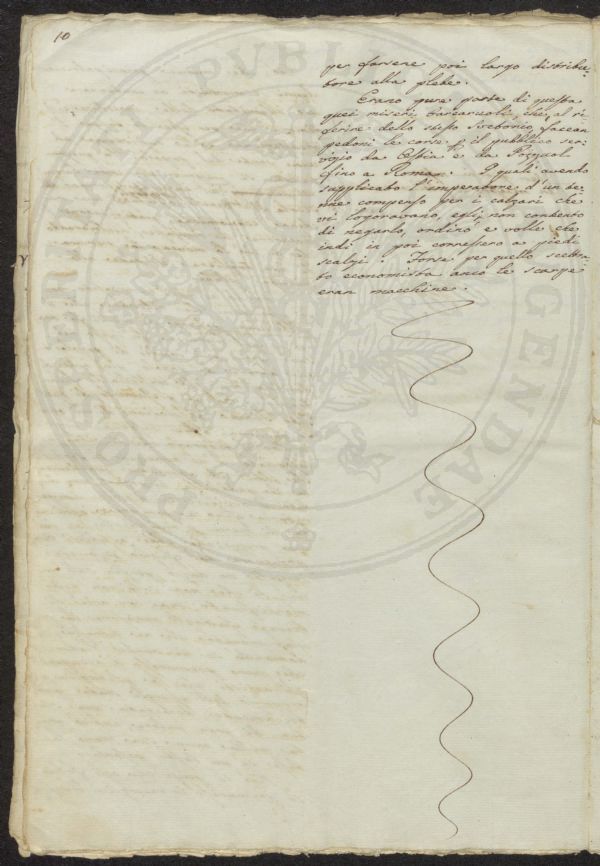 10
per farsene poi largo distribu-
tore alla plebe.
Erano pure parte di questa
quei miseri barcaruoli, che, al ri-
ferire dello stesso Svetonio, faccan
pedoni le corse p il pubblico ser-
vigio da Ostia e da Pozzuol
fino a Roma. I quali avendo
supplicato l'imperadore d'un te-
nue compenso per i calzari che
vi logoravano, egli, non contento
di negarlo, ordinò e volle che
indi in poi corressero a piedi
scalzi. Forse per quello scelera-
to economista anco le scarpe
eran macchine.
PROSPERITATI PVBLICAE AVGENDAE